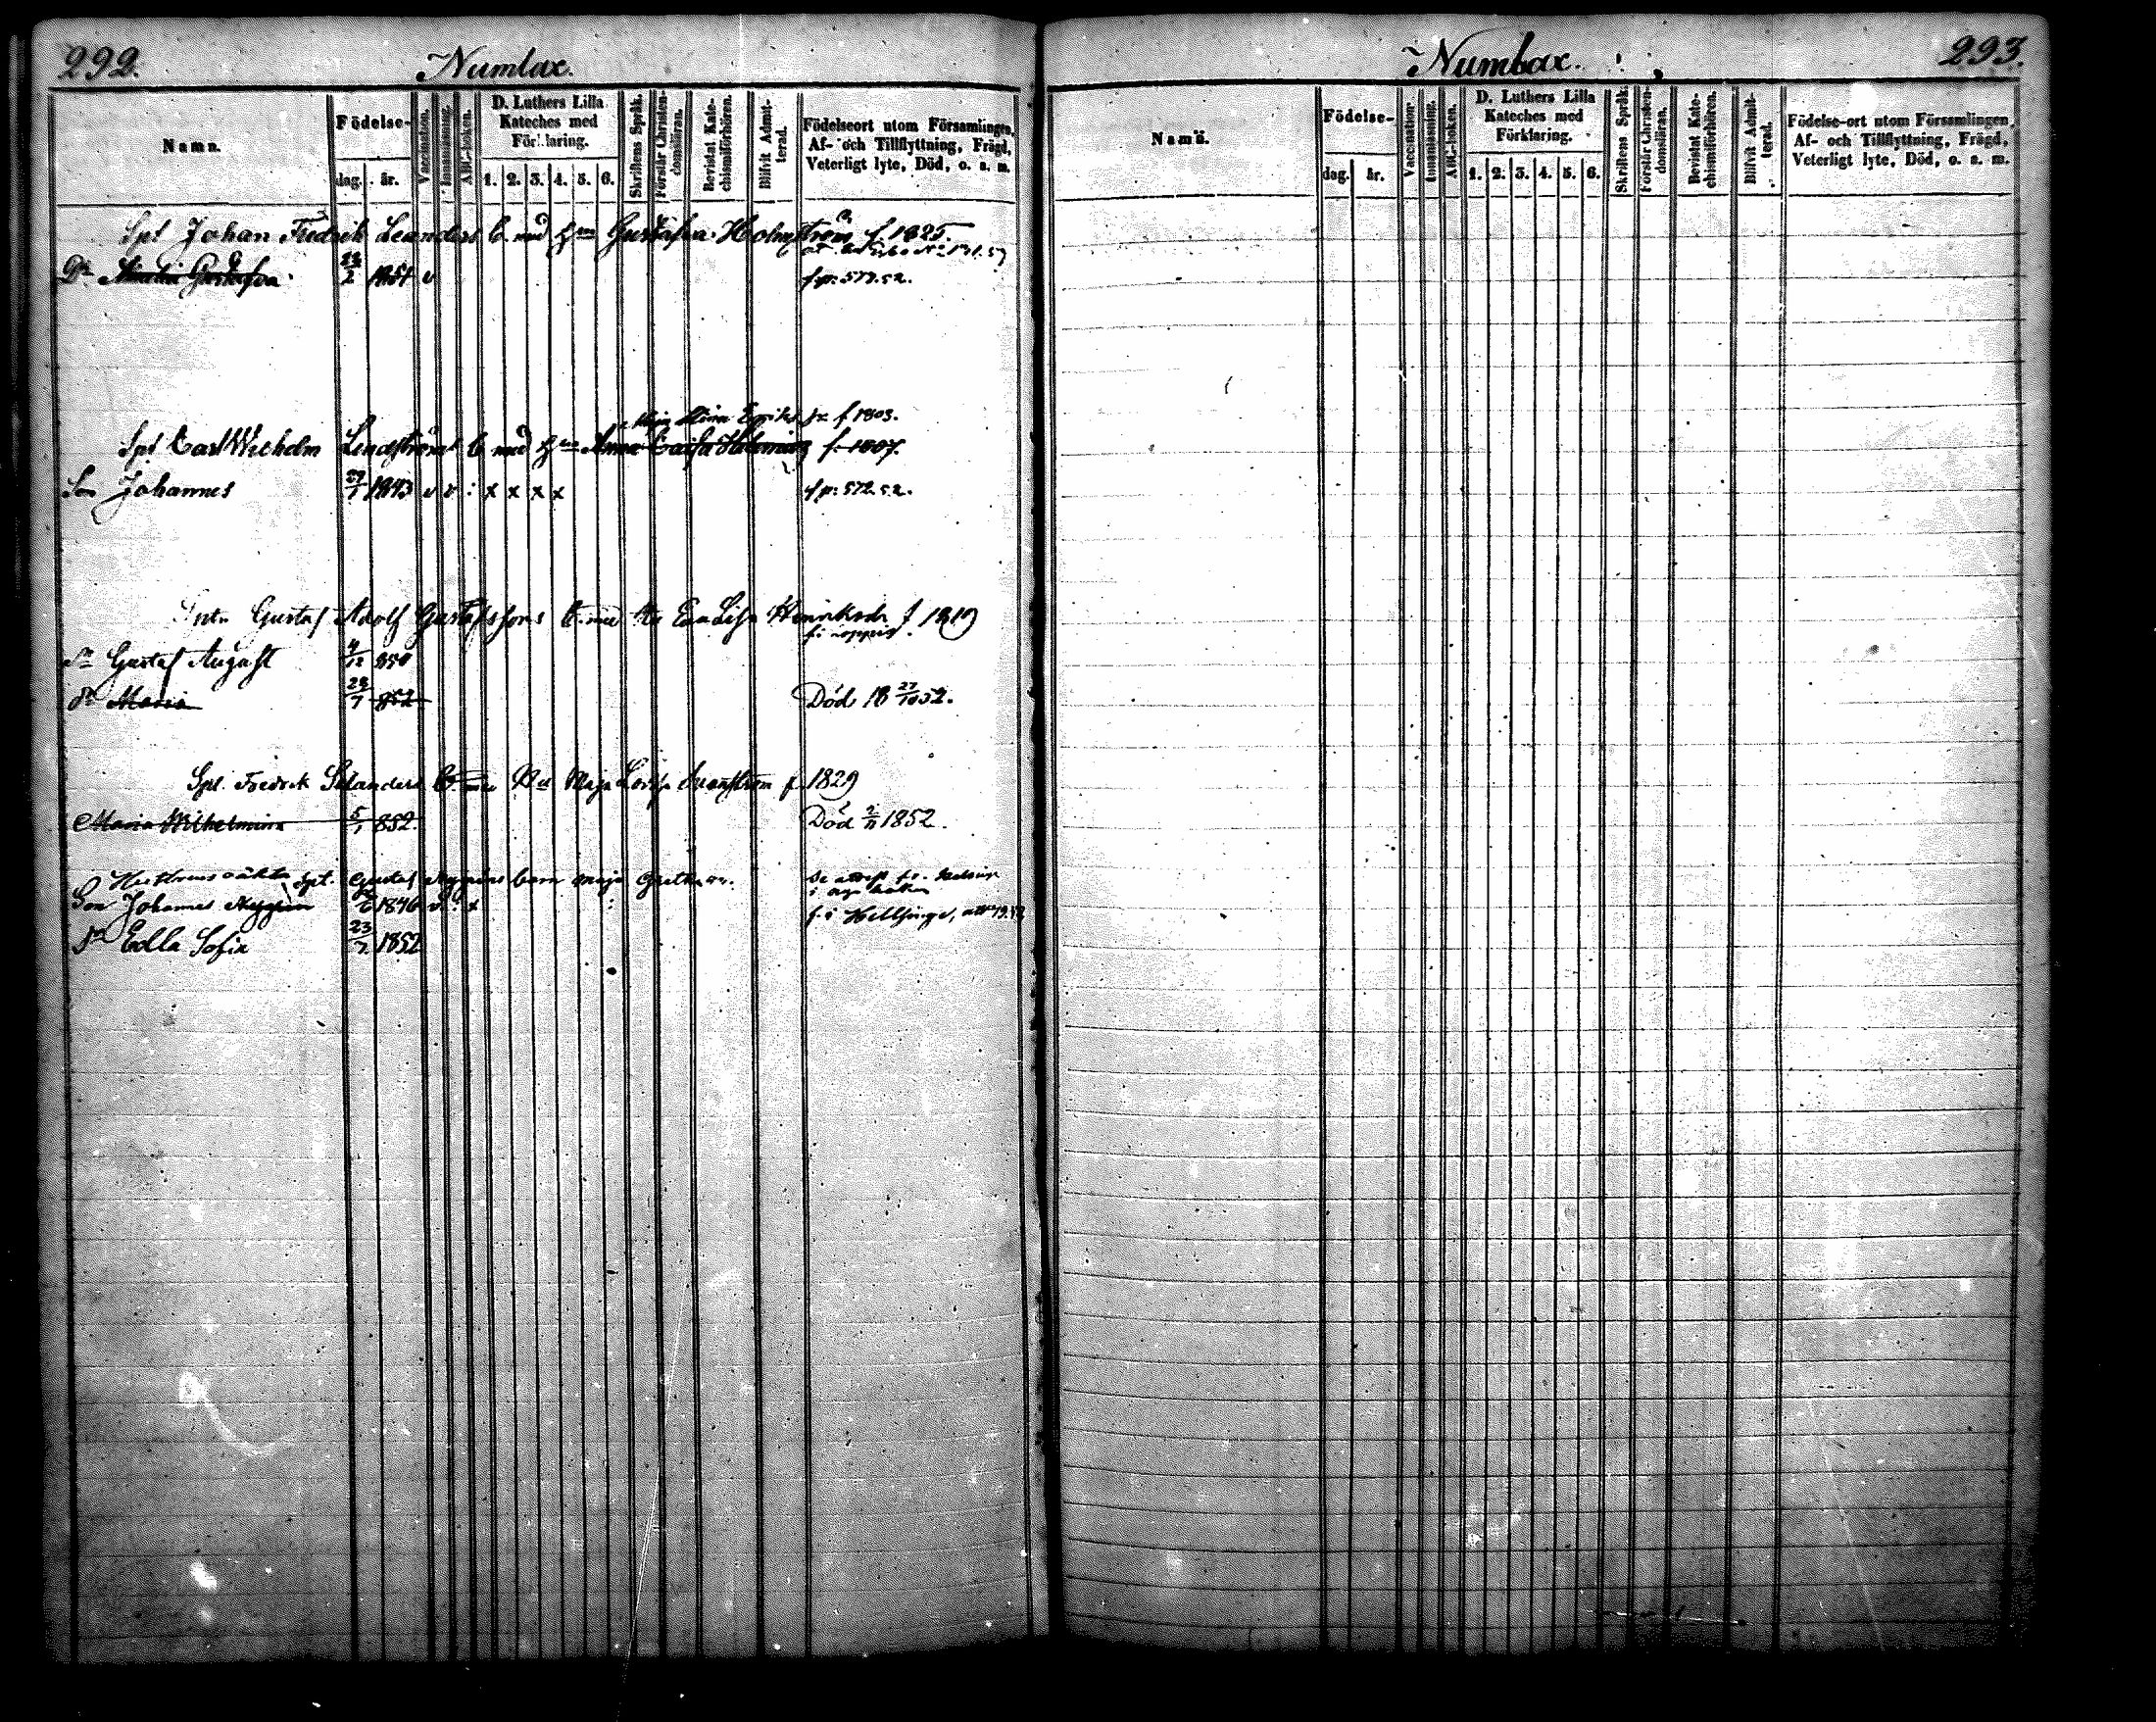 292.
Numlax.
Namn.
Födelse-
dag. år.
Vaccination.
Innanläsning.
ABC-boken.
D. Luthers Lilla
Kateches med
Förklaring.
1. 2. 3. 4. 5. 6.
Skriftens Språk.
Förstår Christen-
domsläran.
Bevistat Kate-
chismiförhören.
Blifvit Admit-
terad.
Födelseort utom Församlingen,
Af- och Tillflyttning, Frägd,
Veterligt lyte, Död, o. a. m.
Spl Johan Fredrik Leanders b. med Hu Gustafva Holmström f. 1825.
Dr Gustafva 23/2 1851 v f. p. 577.52.
f. 1803.
Spl Carl Wilhelm Lindströms b. med Hu Anna Caisa f. 1807.
Son Johannes 27/1 1843 v v : x x x x f. p. 572.52.
Gustaf Adolf Gustafssons b. med Eva Lisa Henriksdr f 1819
Sn Gustaf August 4/12 850
Dr Maria 28/7 852 Död 18 27/10 52.
Spl. Fredrik Selanders b. med Maja Lovisa f. 1829
Maria Wilhelmina 5/1 852. Död 2/11 1852.
Spl. Gustaf barn Maja Greta
Son Johannes 1846
Edla Sofia 23/7 1852
293.
Numlax.
Namn.
Födelse-
dag. år.
Vaccination.
Innanläsning.
ABC-boken.
D. Luthers Lilla
Kateches med
Förklaring.
1. 2. 3. 4. 5. 6.
Skriftens Språk.
Förstår Christen-
domsläran.
Bevistat Kate-
chismiförhören.
Blifvit Admit-
terad.
Födelse-ort utom Församlingen,
Af- och Tillflyttning, Frägd,
Veterligt lyte, Död, o. a. m.